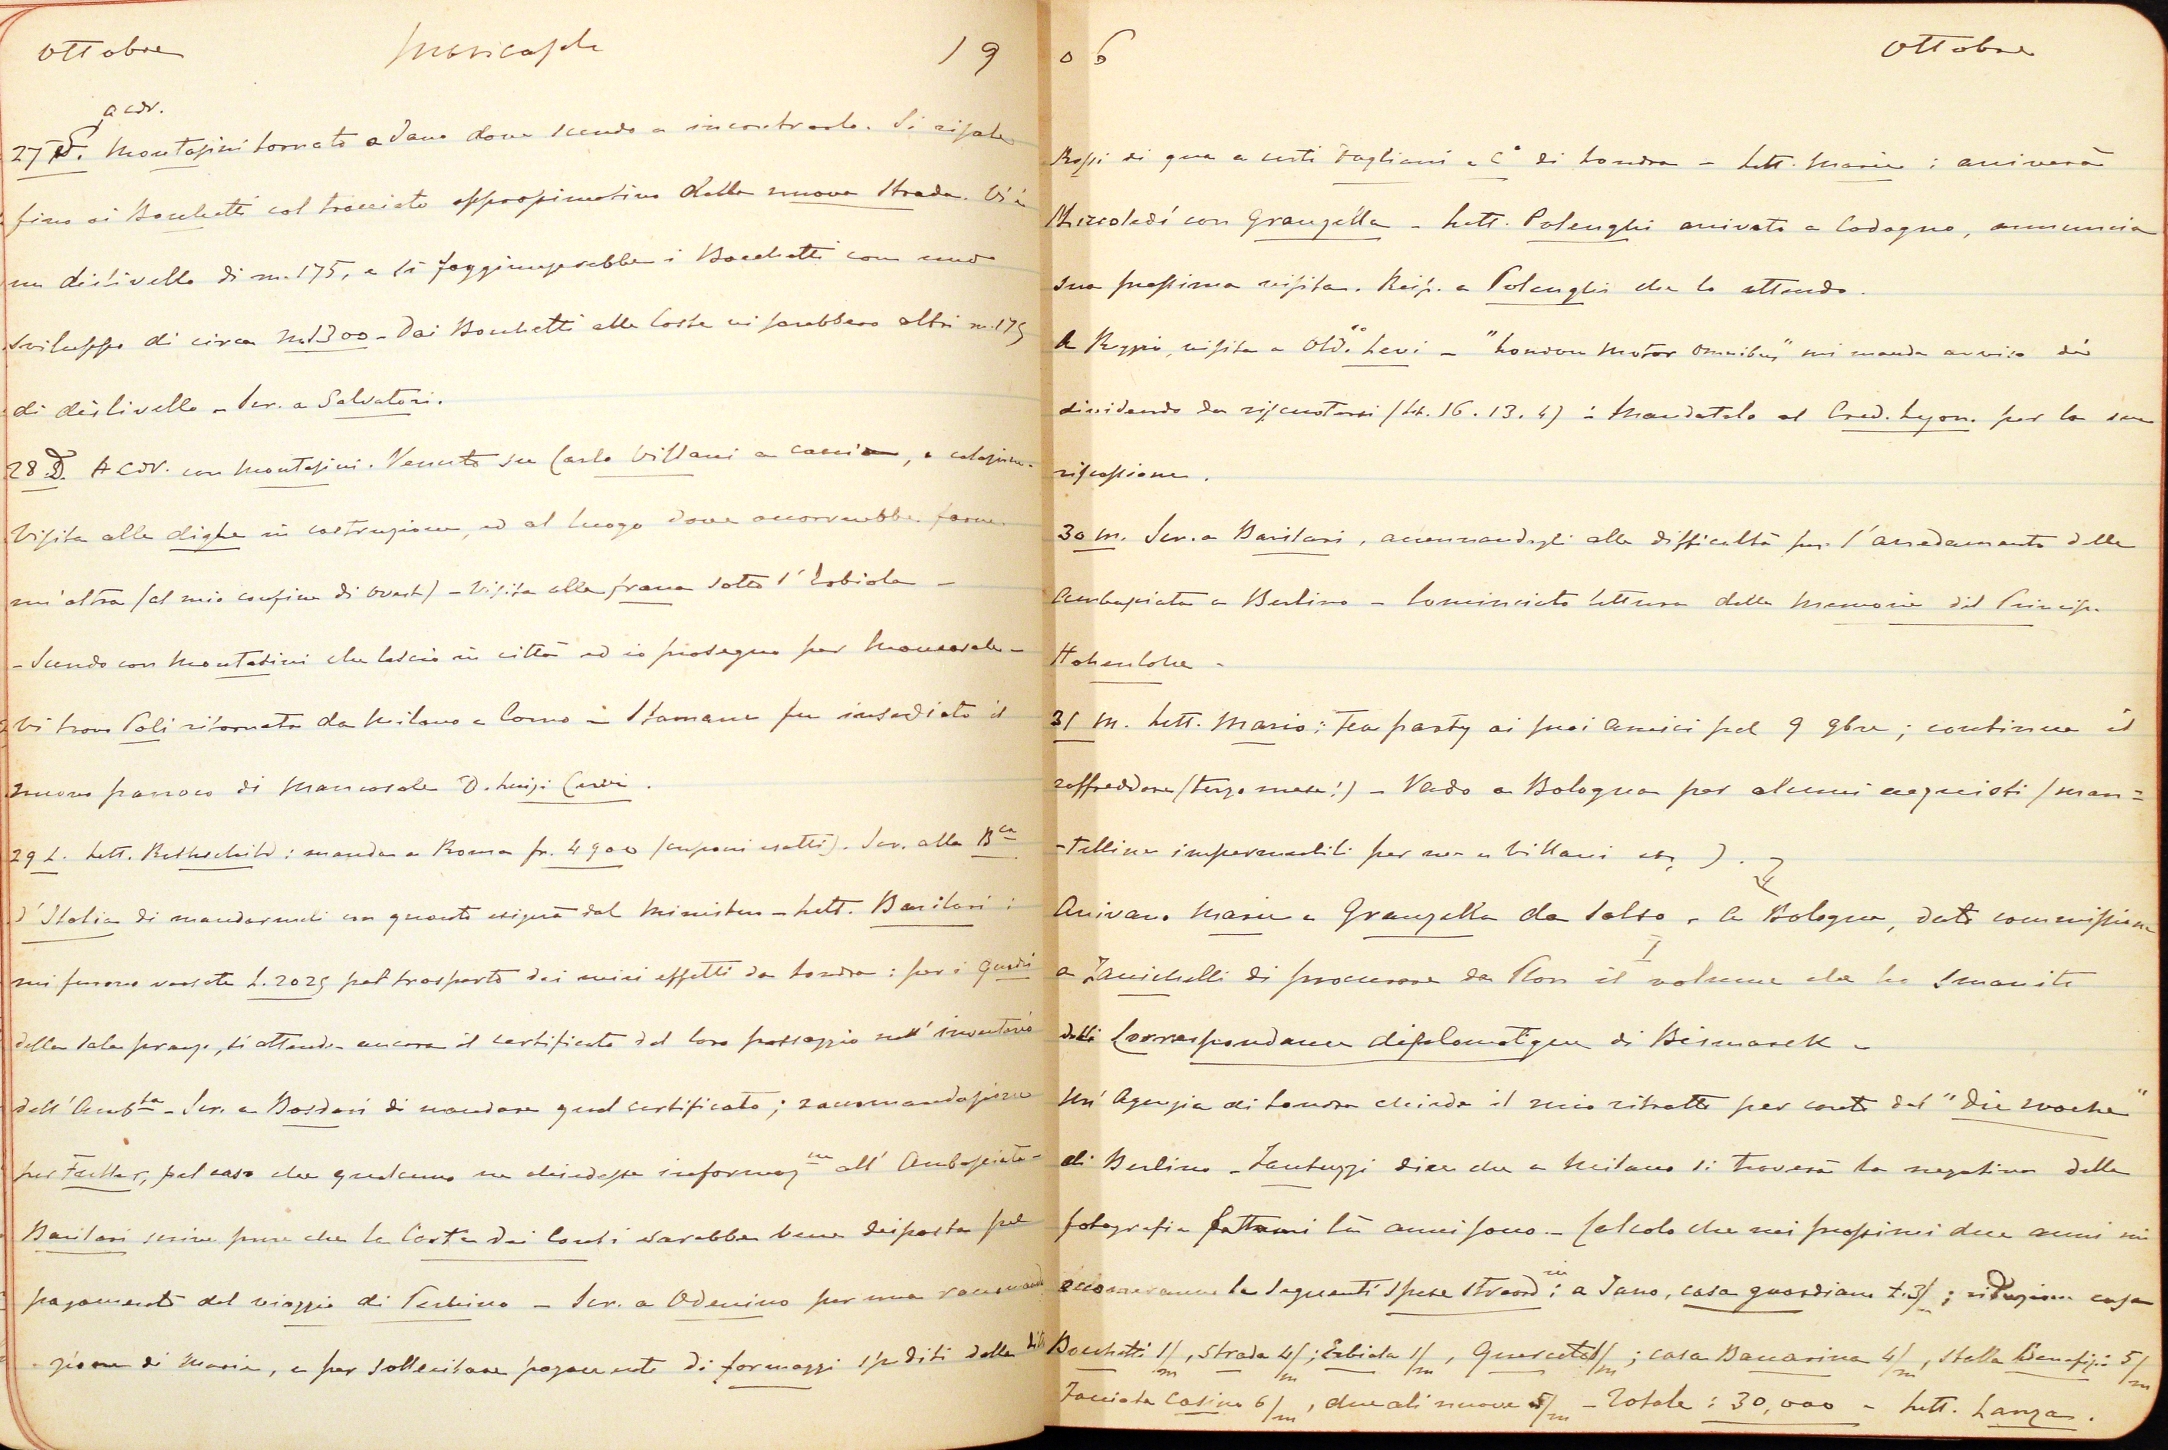 Ottobre Moncasale 19
a CdV.
27 S. Montasini tornato a Jano dove scendo a incontrarlo. Si risale
fino ai Bocchetti col tracciato approssimativo della nuova strada. Vi è
un dislivello di m. 175, e si raggiungerebbe i Bocchetti con uno
sviluppo di circa m. 1300 - Dai Bocchetti alle Coste vi sarebbero altri m. 175
di dislivello - Scr. a Salvatori.
28 D. A CdV. con Montasini. Venuto su Carlo Villani a caccia, e colazione.
Visita alle dighe in costruzione, ed al luogo dove occorrerebbe farne
un'altra (al mio confine di ovest) - Visita alla frana sotto l'Erbiola -
- Scendo con Montasini che lascio in città ed io proseguo per Moncasale -
Vi trovo Poli ritornato da Milano e Como - Stamane fu insediato il
nuovo parroco di Moncasale D. Luigi Curti.
29 L. Lett. Rothschild: manda a Roma fr. 4900 (cuponi esatti). Scr. alla Bca
d'Italia di mandarmeli con quanto esigerà dal Ministero - Lett. Barilari:
mi furono versate L. 2025 pel trasporto dei miei effetti da Londra: per i quadri
della sala pranzo, si attende ancora il certificato del loro passaggio nell'inventario
dell'Ambta - Scr. a Bosdari di mandare quel certificato; raccomandazione
per Fuller, pel caso che qualcuno ne chiedesse informazne all'Ambasciata -
Barilari scrive pure che la Corte dei Conti sarebbe bene disposta pel
pagamento del viaggio di Pechino - Scr. a Odenino per una raccomand
zione di Maria, e per sollecitare pagamento di formaggi spediti dalla
06 Ottobre
Rossi di qua a certi Fagliani e C° di Londra - Lett. Maria: arriverà
Mercoledì con Graugella - Lett. Polenghi arrivato a Codogno, annuncia
sua prossima visita. Risp. a Polenghi che lo attendo.
A Reggio, visita a Old. Levi - "London Motor Omnibus" mi manda avviso di
dividendo da riscuotersi (Ls. 16. 13. 4) - Mandatolo al Cred. Lyon. per la sua
riscossione.
30 M. Scr. a Barilari, accennandogli alle difficoltà per l'arredamento della
Ambasciata a Berlino - Cominciata lettura delle Memorie del Princip.
Hohenlohe -
31 M. Lett. Mario: Tea party ai suoi amici pel 9 9bre; continua il
raffreddore (terzo mese!) - Vado a Bologna per alcuni acquisti (man=
-telline impermeabili per me e Villani etc.).
Arrivano Maria e Graugella da Salso. A Bologna, dato commissione
a Zanichelli di procurare da Plon il I volume che ho smarrito
della Correspondance diplomatique di Bismarck -
Un'Agenzia di Londra chiede il mio ritratto per conto del "Die Woche"
di Berlino - Fantuzzi dice che a Milano si troverà la negativa della
fotografia fattami là anni sono - Calcolo che nei prossimi due anni mi
occorreranno le seguenti spese straordrie: a Jano, casa guardiano L. 3/m; riduzione casa
Bocchetti 1/m, strada 4/m; Erbiola 1/m, Querceto 1/m; casa Baccarina 4/m, stalla Benefizio 5/m
Facciata Casino 6/m, due ali nuove 5/m - Totale: 30,000 - Lett. Lanza.